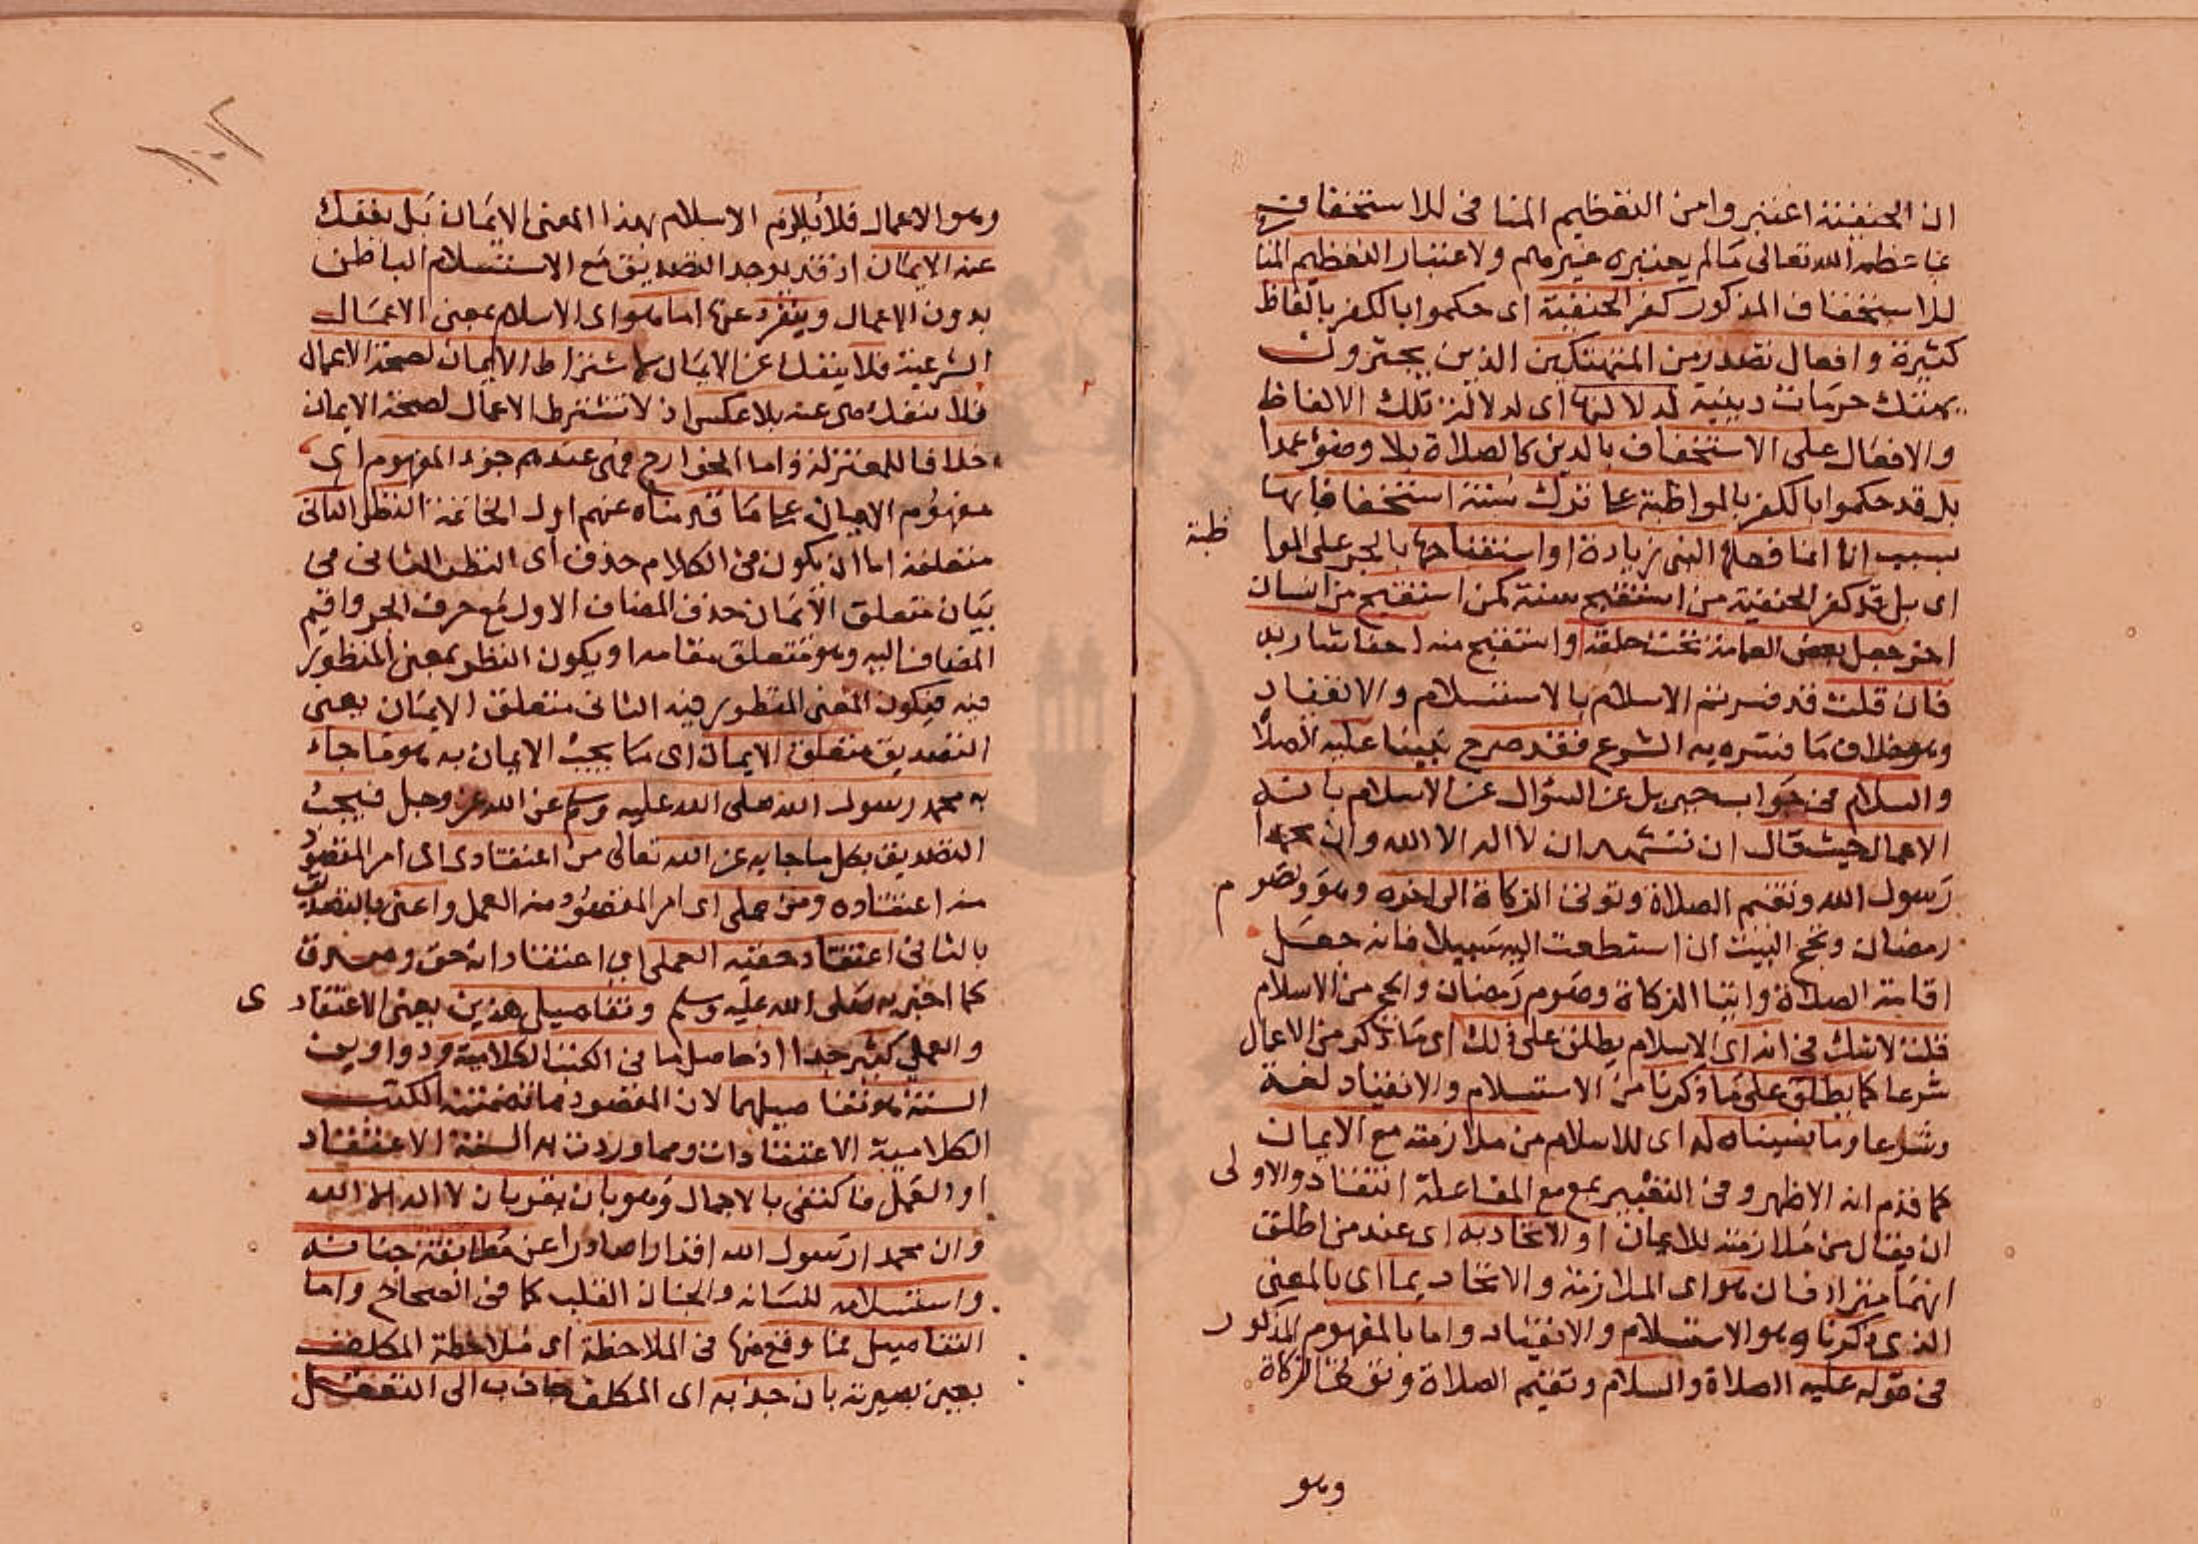 ان الحنفية اعتبروا من التعظيم المنافى للاستخفاف
بما عظمه الله تعالى مالم يعتبره غيرهم ولاعتبار التعظيم المنا
للاستخفاف المذكور كفر الحنفية اى حكموا بالكفر بالفاظ
كثيرة وافعال تصدر من المنهتكين الذين يجترون
بهتك حرمات دينية لدلالتها اى لدلالة تلك الالفاظ
والافعال على الاستخفاف بالدين كالصلاة بلا وضوء عمدا
بل قد حكموا بالكفر بالمواظبة على ترك سنة استخفافا بها
بسبب انها انما فعلها النبى زيادة او استقباحها بالجر على الموا ظبة
اى بل قد كفر الحنفية من استقبح سنة كمن استقبح من انسان
اخر جعل بعض العمامة تحت حلقه او استقبح منه احفا شاربه
فان قلت قد فسرتم الاسلام بالاستسلام والانقياد
وهو خلاف ما فسره به الشرع فقد صرح نبينا عليه الصلاة
والسلام فى جواب جبريل عن السؤال عن الاسلام بانه
الاعمال حيث قال ان تشهد ان لا اله الا الله وان محمدا
رسول الله وتقيم الصلاة وتوتى الزكاة الى اخره وهو وتصوم
رمضان وتحج البيت ان استطعت اليه سبيلا فانه جعل
اقامة الصلاة وايتا الزكاة وصوم رمضان والحج من الاسلام
قلت لا شك فى انه اى الاسلام يطلق على ذلك اى ما ذكر من الاعمال
شرعا كما يطلق على ما ذكرنا من الاستسلام والانقياد لغة
وشرعا وما نسبناه له اى للاسلام من ملازمته مع الايمان
كما قدم انه الاظهر وفى التعبير بمع مع المفاعلة انتقاد والاولى
ان يقال من ملازمته للايمان او الاتحاد به اى عند من اطلق
انهما مترادفان هو اى الملازمة والاتحاد بما اى بالمعنى
الذى ذكرناه وهو الاستسلام والانقياد واما بالمفهوم المذكور
فى قوله عليه الصلاة والسلام وتقيم الصلاة وتوتى الزكاة
وهو
وهو الاعمال فلا يلازم الاسلام بهذا المعنى الايمان بل ينفك
عنه الايمان اذ قد يوجد التصديق مع الاستسلام الباطن
بدون الاعمال وينفرد عنها اما هو اى الاسلام بمعنى الاعمال
الشرعية فلا ينفك عن الايمان لاشتراط الايمان لصحة الاعمال
فلا تنفك هى عنه بلا عكس اذ لا تشترط الاعمال لصحة الايمان
خلافا للمعتزلة واما الخوارج فهى عندهم جزء المفهوم اى
مفهوم الايمان على ما قدمناه عنهم اول الخاتمة النظر الثانى
متعلقه اما ان يكون فى الكلام حذف اى النظر الثانى فى
بيان متعلق الايمان حذف المضاف الاول مع حرف الجر واقيم
المضاف اليه وهو متعلق مقامه او يكون النظر بمعنى المنظور
فيه فيكون المعنى المنظور فيه الثانى متعلق الايمان بمعنى
التصديق متعلق الايمان اى ما يجب الايمان به هو ما جاء
به محمد رسول الله صلى الله عليه وسلم عن الله عز وجل فيجب
التصديق بكل ما جا به عن الله تعالى من اعتقادى اى امر المقصود
منه اعتقاده ومن عملى اى امر المقصود منه العمل واعنى بالتصديق
بالثانى اعتقاد حقية العملى اى اعتقاد انه حق وصدق
كما اخبر به صلى الله عليه وسلم وتفاصيل هذين بمعنى الاعتقادى
والعملى كثير جدا اذ حاصل ما فى الكتب الكلامية ودواوين
السنة هو تفاصيلهما لان المقصود ما تضمنته الكتب
الكلامية الاعتقادات ومما وردت به السنة الاعتقاد
او العمل فاكتفى بالاجمال وهو بان يقر بان لا اله الا الله
وان محمدا رسول الله اقرارا صادرا عن مطابقة جنانه
واستسلامه للسانه والجنان القلب كما فى الصحاح واما
التفاصيل فما وقع منها فى الملاحظة اى ملاحظة المكلف
بعين بصيرته بان جذبه اى المكلف جاذب الى التعقل